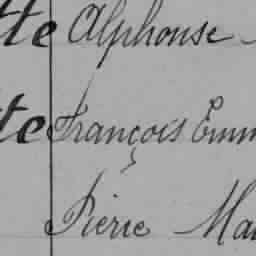 tte Alphonse
tte François Emm
Pierre Ma